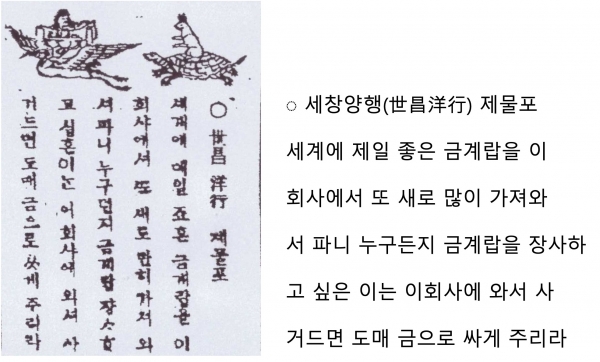 ○ 世昌 洋行 제물포
세계에 뎨일 죠흔 금계랍을 이
회샤에셔 또 새로 만히 가져 와
셔 파니 누구던지 금계랍 쟝ᄉᆞᄒᆞ
고 십흔이ᄂᆞᆫ 이회샤에 와셔 사
거드면 도매 금으로 쌋게 주리라
○ 세창양행(世昌洋行) 제물포
세계에 제일 좋은 금계랍을 이
회사에서 또 새로 많이 가져와
서 파니 누구든지 금계랍을 장사하
고 싶은 이는 이회사에 와서 사
거드면 도매 금으로 싸게 주리라